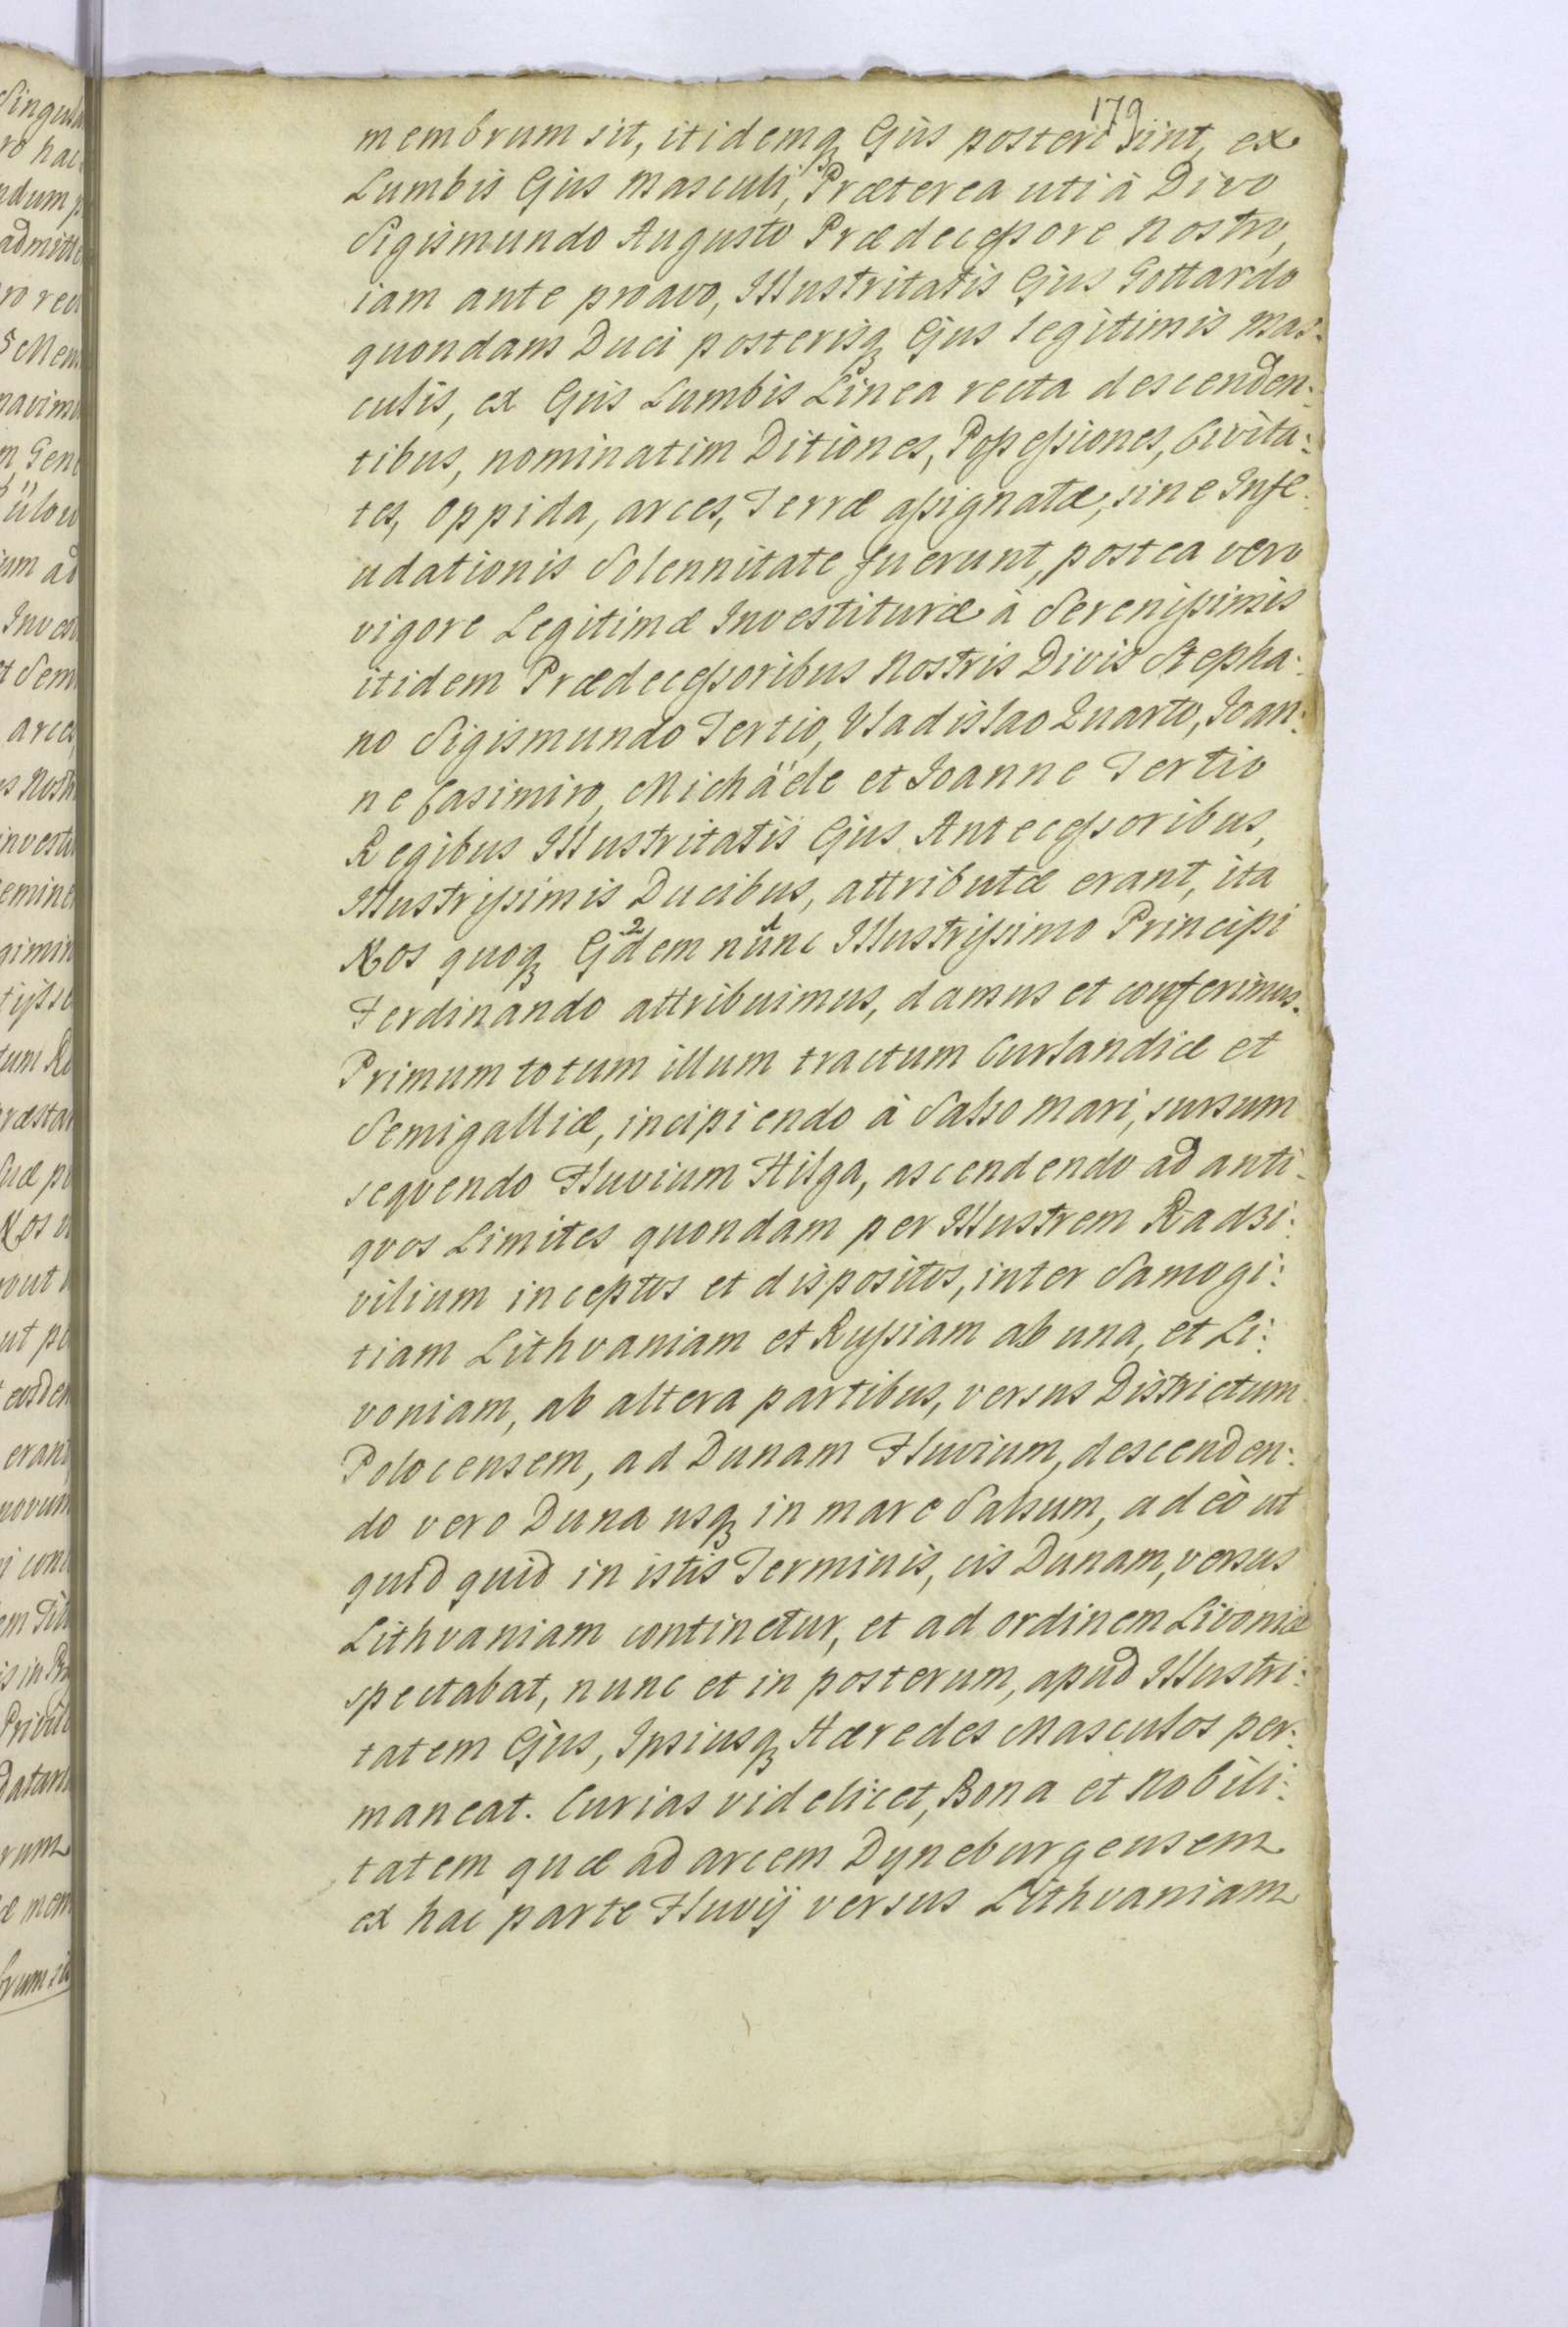 179
membrum sit, itidemq₃ Ejus posteri sint, ex
Lumbis Ejus Masculi, Præterea uti à Divo
Sigismundo Augusto Prædecessore Nostro,
iam ante proavo, Illustritatis Ejus Gottardo
quondam Duci posterisq₃ Ejus legitimis Mas:
culis, ex Ejus Lumbis Linea recta descenden:
tibus, nominatim Ditiones, Possessiones, Civita:
tes, Oppida, arces, Terræ assignatæ, sine Infe:
udationis Solennitate fuerunt, postea vero
vigore Legitimæ Investituræ à Serenissimis
itidem Prædecessoribus Nostris Divis Stepha:
no Sigismundo Tertio, Vladislao Quarto, Ioan:
ne Casimiro, Michäele et Ioanne Tertio
Regibus Illustritatis Ejus Antecessoribus,
Illustrissimis Ducibus, attributæ erant, ita
Nos quoq₃ E²jdem nu¹nc Illustrissimo Principi
Ferdinando attribuimus, damus et conferimus.
Primum totum illum tractum Curlandiæ et
Semigalliæ, incipiendo à Salso Mari, sursum
seqvendo Fluvium Hilga, ascendendo ad anti:
qvos Limites quondam per Illustrem Radzi:
vilium inceptos et dispositos, inter Samogi:
tiam Lithvaniam et Russiam ab una, et Li:
voniam, ab altera partibus, versus Districtum
Polocensem, ad Dunam Fluvium, descenden:
do vero Duna usq₃ in mare Salsum, adeò ut
quid quid in istis Terminis, cis Dunam, versus
Lithvaniam continetur, et ad ordinem Livoniæ
spectabat, nunc et in posterum, apud Illustri:
tatem Ejus, Ipsiusq₃ Hæredes Masculos per:
maneat. Curias videlicet, Bona et Nobili:
tatem quæ ad arcem Dyneburgensem
ex hac parte Fluvij versus Lithvaniam